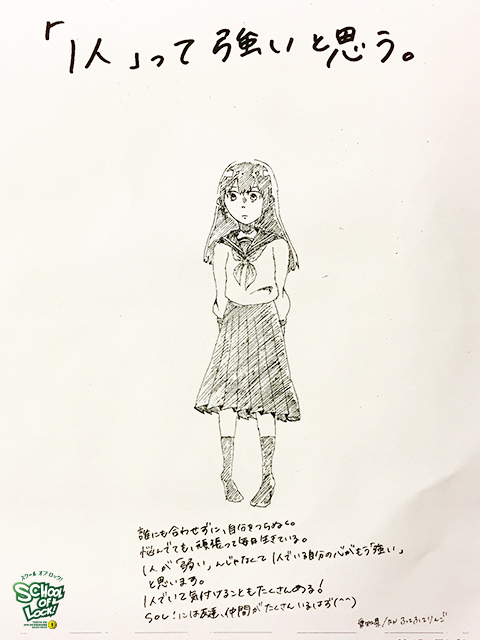 「1人」って強いと思う。
誰にも合わせずに、自分をつらぬく。
悩んでても、頑張って毎日生きている。
1人が「弱い」んじゃなくて1人でいる自分の心がもう「強い」
と思います。
1人でいて気付けることもたくさんある!
SOL!には友達、仲間がたくさんいるはず(^^)
愛知県/RN ふわふわりんご
スクール オブ ロック!
SCHOOL
OF
LOCK!